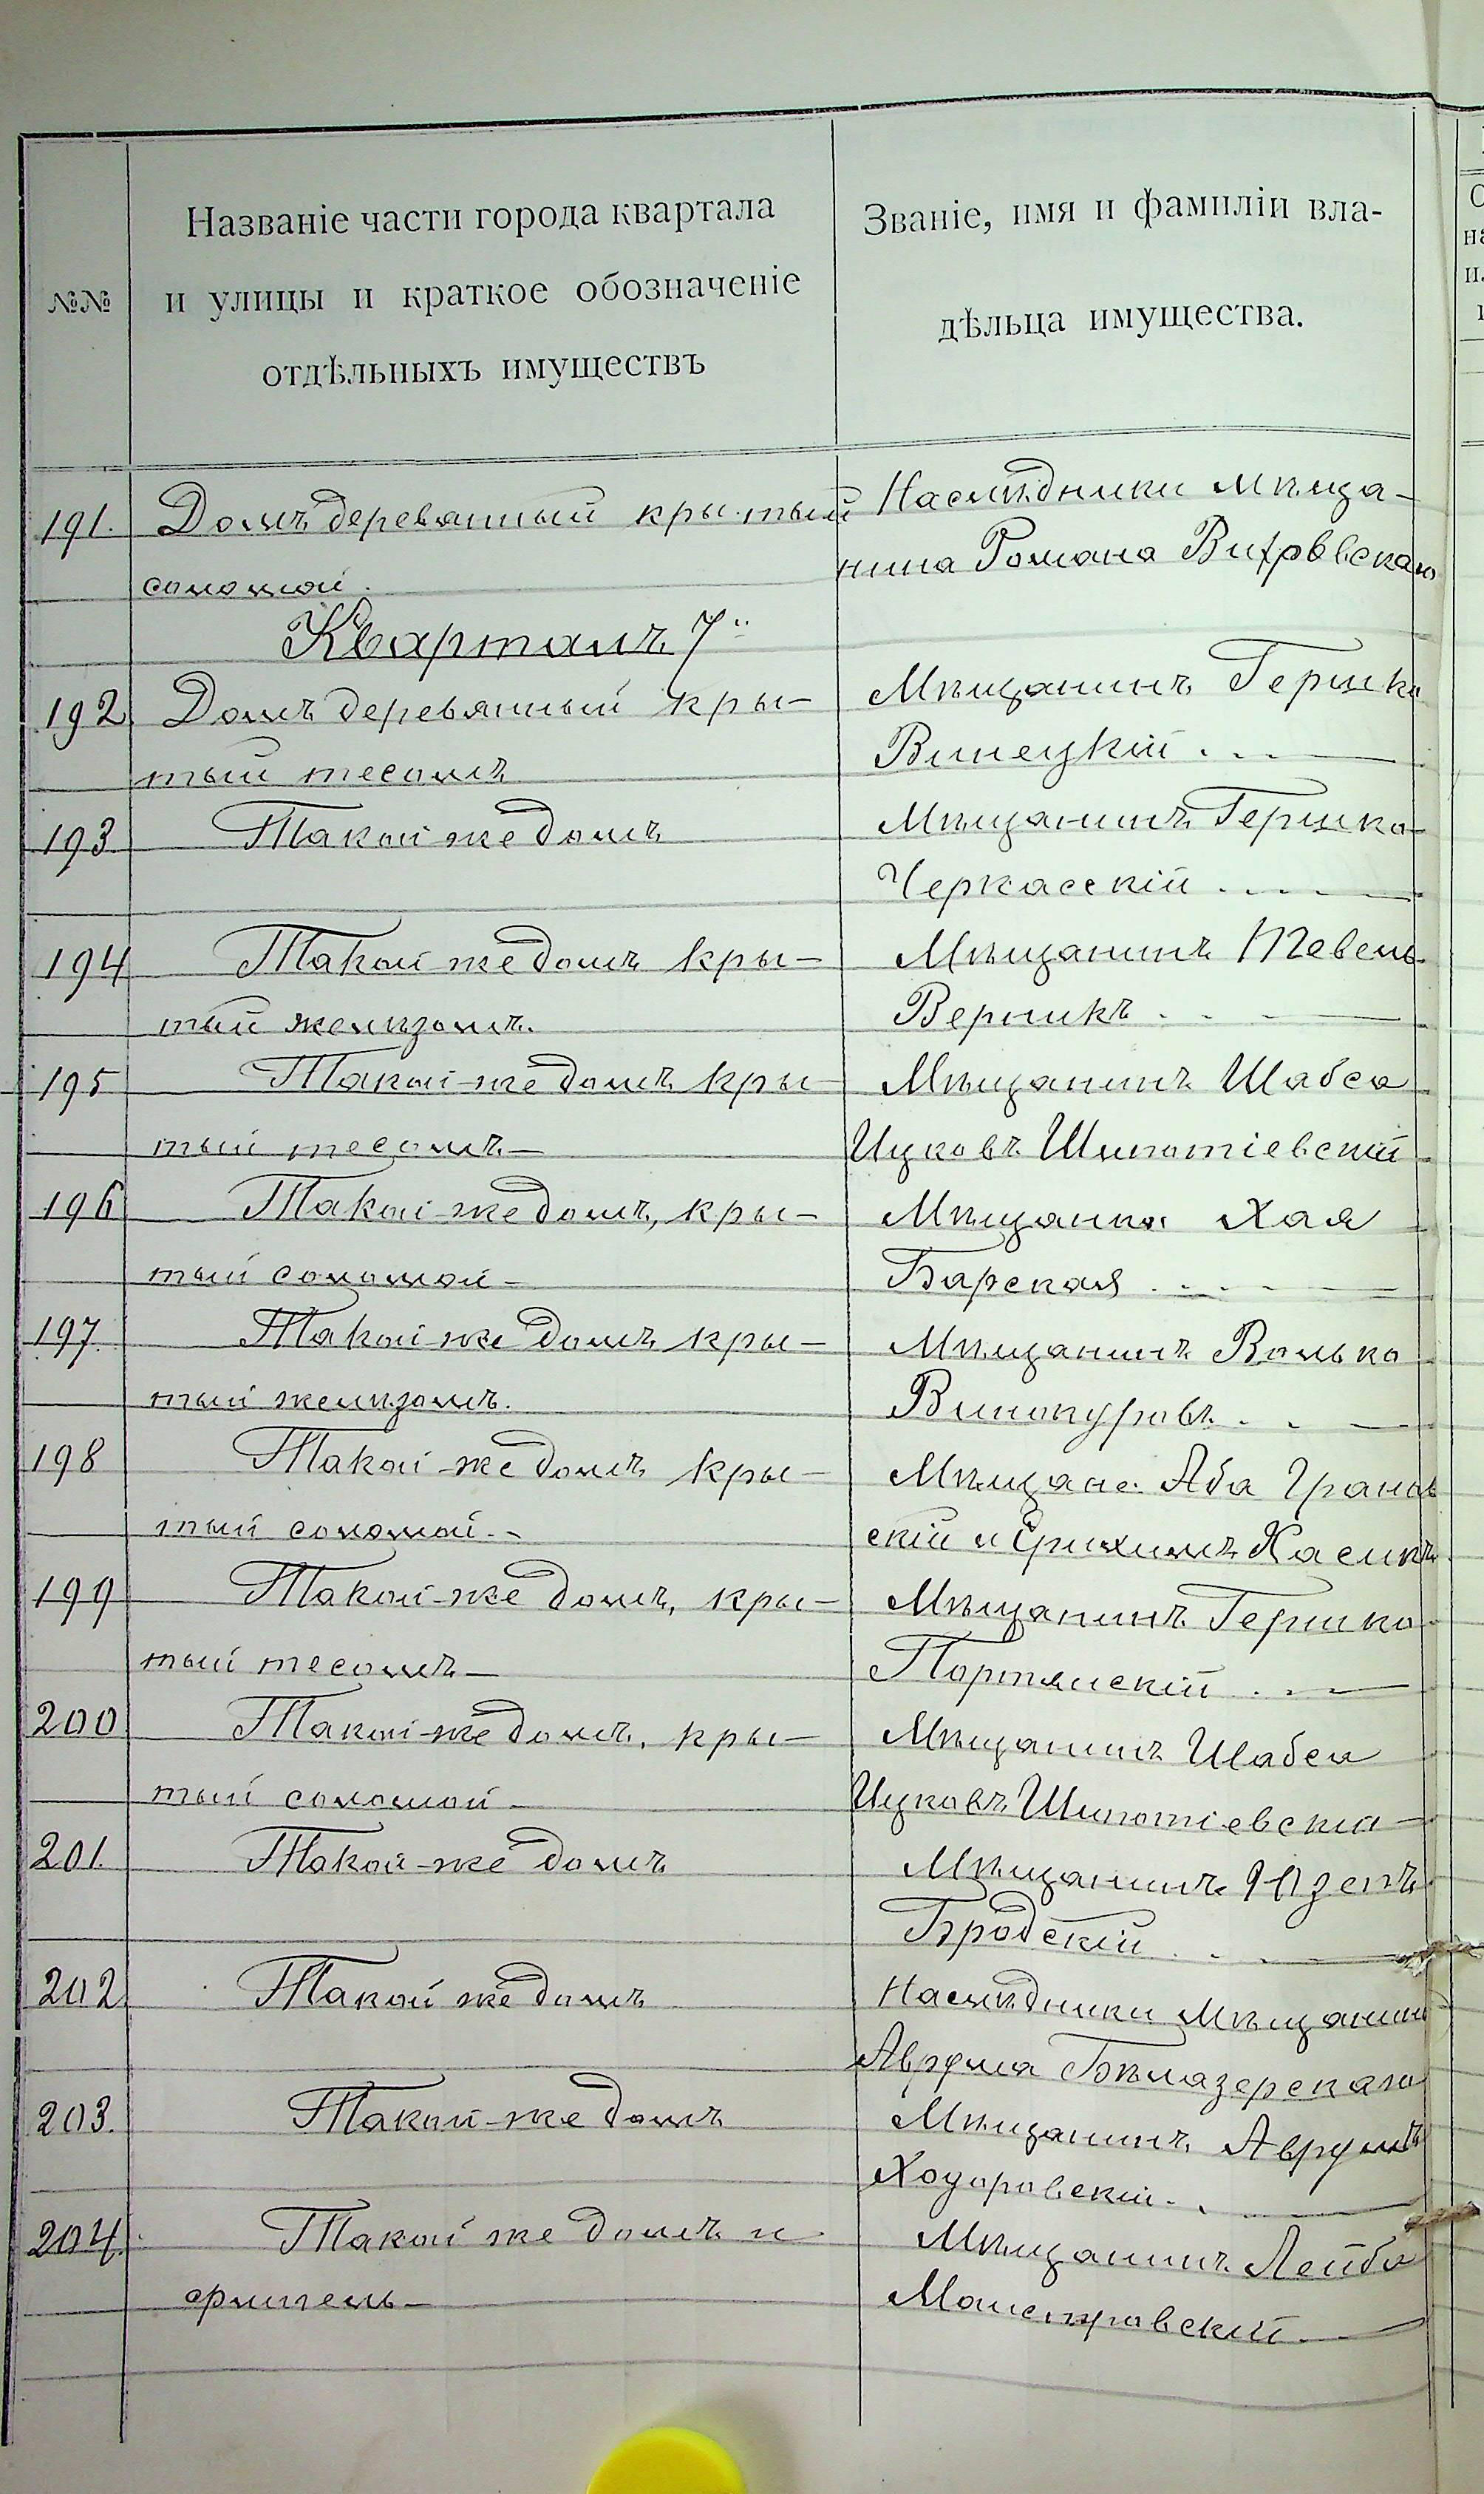 №№
Названіе части города квартала
и улицы и краткое обозначеніе
отдѣльныхъ имуществъ
Званіе, имя и фамиліи вла-
дѣльца имущества.
191. Домъ деревянный крытый
соломой.
Наслѣдники мѣща-
нина Романа
Кварталъ 7й
192 Домъ деревянный кры-
тый тесомъ
Мѣщанинъ Гершко
Винецкій
193 Такой же домъ
Мѣщанинъ Гершко
Черкасскій
194 Такой же домъ кры-
тый желѣзомъ.
Мѣщанинъ Тевель
Верникъ
195 Такой-же домъ кры-
тый тесомъ
Мѣщанинъ Шабса
Ицковъ
196 Такой-же домъ, кры-
тый соломой
Мѣщанка Хая
Барская
197. Такой-же домъ кры-
тый желѣзомъ.
Мѣщанинъ Волько
Винокуровъ
198 Такой-же домъ кры-
тый соломой
Мѣщане Аба Гранов
скій и Хасикъ
199 Такой-же домъ, кры-
тый тесомъ
Мѣщанинъ Гершко
Портянскій
200 Такой-же домъ, кры-
тый соломой
Мѣщанинъ Шабса
Ицковъ
201. Такой-же домъ
Мѣщанинъ
Бродскій
202 Такой же домъ
Наслѣдники мѣщанина
Аврума Бѣлазерскаго
203. Такой-же домъ
Мѣщанинъ Аврумъ
Ходоровскій
204. Такой же домъ и
флигель
Мѣщанинъ Лейба